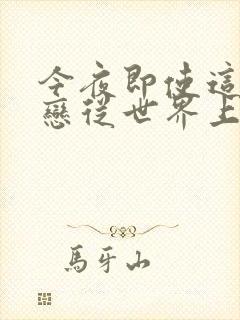 今夜即使這
戀從世界上
馬牙山